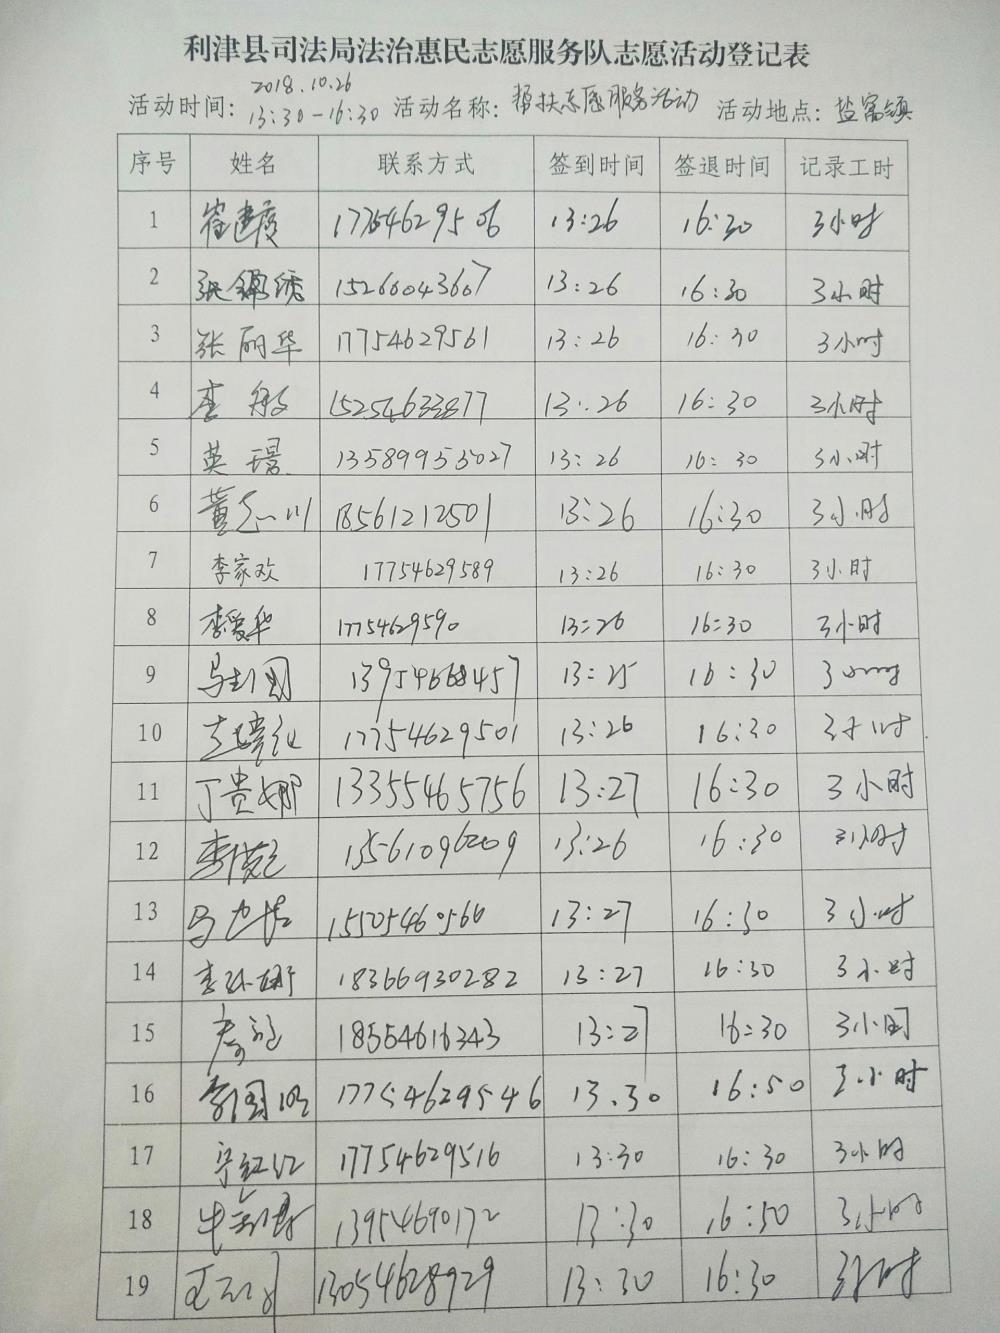 利津县司法局法治惠民志愿服务队志愿活动登记表
活动时间: 2018.10.26 13:30-16:30 活动名称: 帮扶志愿服务活动 活动地点: 盐窝镇
序号 姓名 联系方式 签到时间 签退时间 记录工时
1 崔建霞 17754629506 13:26 16:30 3小时
2 张锦绣 15266043667 13:26 16:30 3小时
3 张丽华 17754629561 13:26 16:30 3小时
4 李敏 15254633877 13:26 16:30 3小时
5 英璟 13589955027 13:26 16:30 3小时
6 董志川 18561212501 13:26 16:30 3小时
7 李家欢 17754629589 13:26 16:30 3小时
8 李爱华 17754629590 13:26 16:30 3小时
9 13954668457 13:25 16:30 3小时
10 17754629501 13:26 16:30 3小时
11 丁贵娜 13355465756 13:27 16:30 3小时
12 13561096209 13:26 16:30 3小时
13 15505460566 13:27 16:30 3小时
14 18366930282 13:27 16:30 3小时
15 18554616343 13:27 16:30 3小时
16 李国明 17754629546 13.30 16:50 3小时
17 17754629516 13:30 16:30 3小时
18 13954690172 13:30 16:50 3小时
19 13054628929 13:30 16:30 3小时